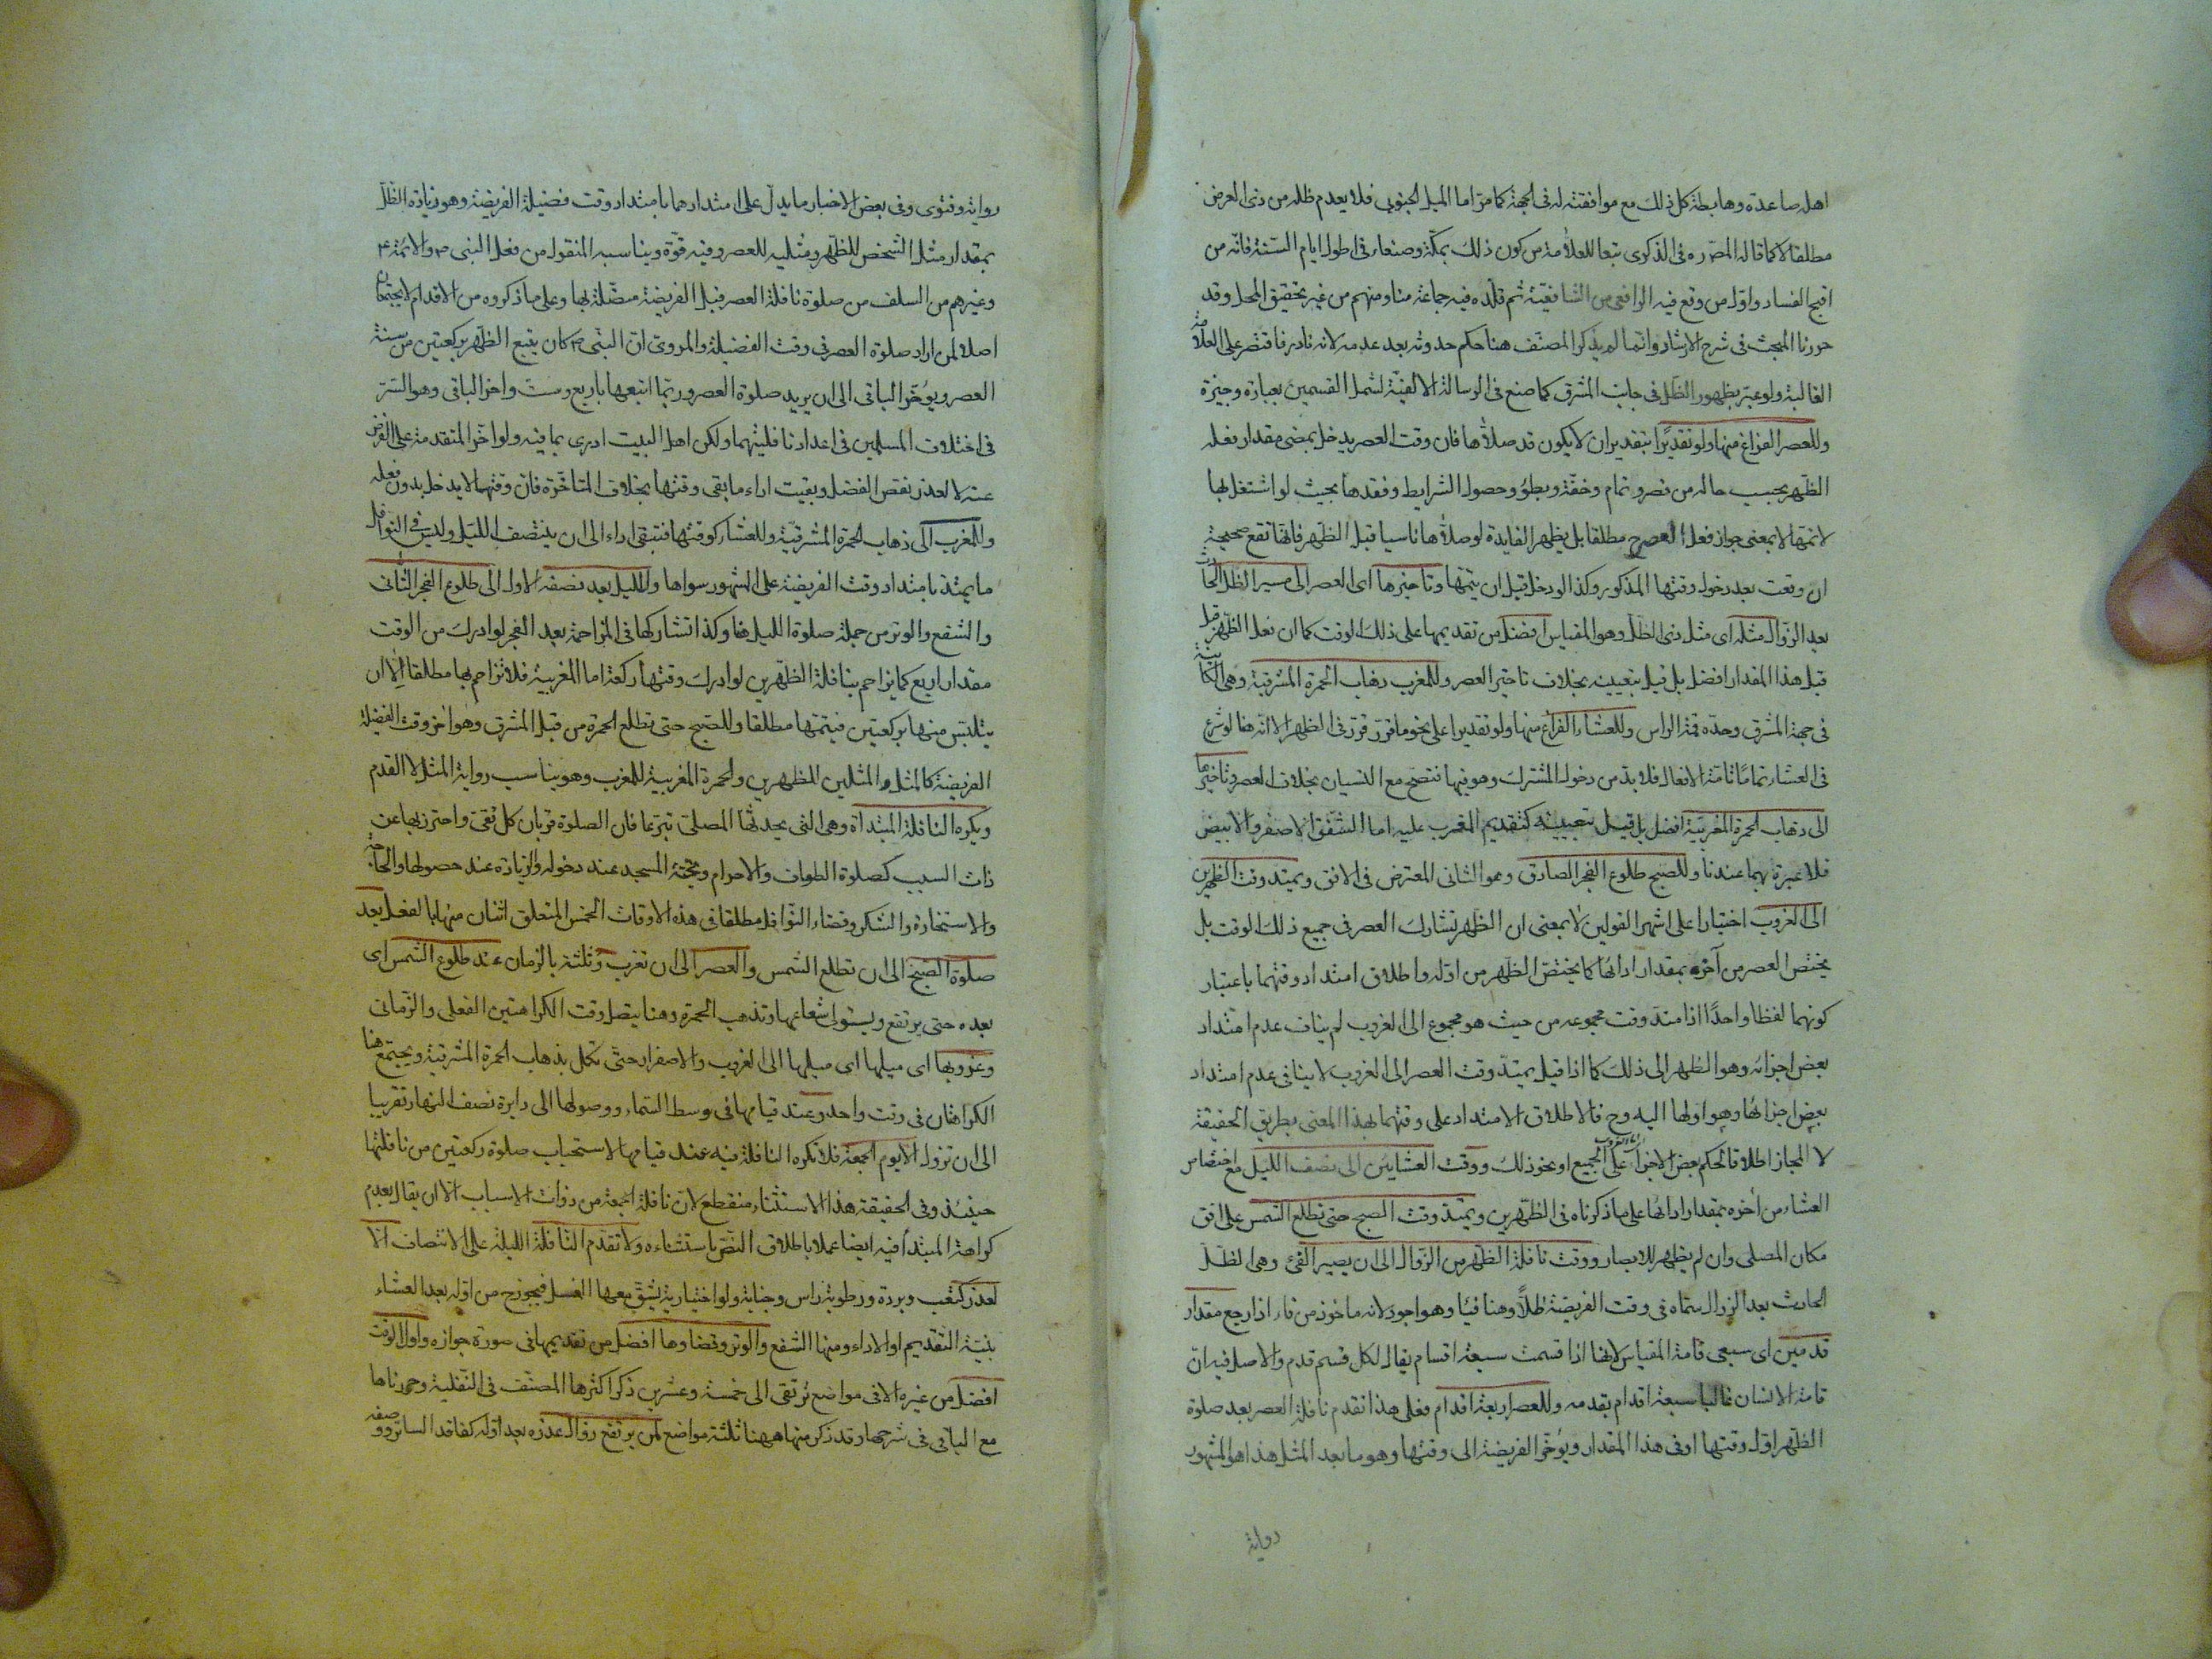 اهله صاعدة وهابطة كل ذلك مع موافقته له فى الجهة كما مر اما الميل الجنوبى فلا يعدم ظله من ذى العرض
مطلقا لا كما قاله المصره فى الذكرى تبعا للعلامة من كون ذلك بمكة وصنعاء فى اطول ايام السنة فانه من
اقبح الفساد واول من وقع فيه الرافعى من الشافعية ثم قلده فيه جماعة منا ومنهم من غير تحقيق المحل وقد
حررنا المبحث فى شرح الارشاد وانما لم يذكر المصنف هنا حكم حدوثه بعد عدمه لانه نادر فاقتصر على العلامة
الغالبة ولو عبر بظهور الظل فى جانب المشرق كما صنع فى الرسالة الالفية لشمل القسمين بعبارة وجيزة
وللعصر الفراغ منها ولو تقديرا بتقدير ان لا يكون قد صلاها فان وقت العصر يدخل بمضى مقدار فعله
الظهر بحسب حاله من قصر وتمام وخفة وبطؤ وحصول الشرايط وفقدها بحيث لو اشتغل بها
لاتمها لا بمعنى جواز فعل العصر ح مطلقا بل يظهر الفايدة لو صلاها ناسيا قبل الظهر فانها تقع صحيحة
ان وقعت بعد دخول وقتها المذكور وكذا لو دخل قبل ان يتمها وتاخيرها اى العصر الى مسير الظل الحادث
بعد الزوال مثله اى مثل ذى الظل وهو المقياس افضل من تقديمها على ذلك الوقت كما ان فعل الظهر قبل
قبل هذا المقدار افضل بل قيل بتعيينه بخلاف تاخير العصر وللمغرب ذهاب الحمرة المشرقية وهى الكاينة
فى جهة المشرق وحده قمة الراس وللعشاء الفراغ منها ولو تقديرا على نحو ما قرر فى الظهر الا انه هنا لو شرع
فى العشاء تماما تامة الافعال فلا بد من دخول المشترك وهو فيها فتصح مع النسيان بخلاف العصر وتاخيرها
الى ذهاب الحمرة المغربية افضل بل قيل بتعيينه كتقديم المغرب عليه اما الشفق الاصفر والابيض
فلا عبرة بهما عندنا وللصبح طلوع الفجر الصادق وهو الثانى المعترض فى الافق ويمتد وقت الظهرين
الى الغروب اختيارا على اشهر القولين لا بمعنى ان الظهر تشارك العصر فى جميع ذلك الوقت بل
يختص العصر من آخره بمقدار ادائها كما يختص الظهر من اوله واطلاق امتداد وقتهما باعتبار
كونهما لفظا واحدا اذا امتد وقت مجموعه من حيث هو مجموع الى الغروب لم يناف عدم امتداد
بعض اجزائه وهو الظهر الى ذلك كما اذا قيل يمتد وقت العصر الى الغروب لا ينافى عدم امتداد
بعض اجزائها وهو اولها اليه وح فالاطلاق الامتداد على وقتهما بهذا المعنى بطريق الحقيقة
لا المجاز اطلاقا لحكم بعض الاجزاء على الجميع او نحو ذلك ووقت العشايين الى نصف الليل مع اختصاص
العشاء من آخره بمقدار ادائها على ما ذكرناه فى الظهرين ويمتد وقت الصبح حتى تطلع الشمس على افق
مكان المصلى وان لم يظهر للابصار ووقت نافلة الظهر من الزوال الى ان يصير الفئ وهى الظل
الحادث بعد الزوال سماه فى وقت الفريضة ظلا وهنا فيئا وهو اجود لانه ماخوذ من فاء اذا رجع مقدار
قدمين اى سبعى قامة المقياس لانها اذا قسمت سبعة اقسام يقال لكل قسم قدم والاصل فيه ان
قامة الانسان غالبا سبعة اقدام بقدمه وللعصر اربعة اقدام فعلى هذا تقدم نافلة العصر بعد صلوة
الظهر اول وقتها او فى هذا المقدار ويؤخر الفريضة الى وقتها وهو ما بعد المثل هذا هو المشهور
رواية
رواية وفتوى وفى بعض الاخبار ما يدل على امتدادهما بامتداد وقت فضيلة الفريضة وهو زيادة الظل
بمقدار مثل الشخص للظهر ومثليه للعصر وفيه قوة ويناسبه المنقول من فعل النبى ص والائمة ع
وغيرهم من السلف من صلوة نافلة العصر قبل الفريضة متصلة بها وعلى ما ذكروه من الاقدام لا يجتمعان
اصلا لمن اراد صلوة العصر فى وقت الفضيلة والمروى ان النبى ص كان يتبع الظهر بركعتين من سنة
العصر ويؤخر الباقى الى ان يريد صلوة العصر وربما اتبعها باربع وست واخر الباقى وهو السر
فى اختلاف المسلمين فى اعداد نافليتهما ولكن اهل البيت ادرى بما فيه ولو اخر المتقدمة على الفرض
عنه لا لعذر نقص الفضل وبقيت اداء ما بقى وقتها بخلاف المتاخرة فان وقتها لا يدخل بدون فعله
وللمغرب الى ذهاب الحمرة المشرقية وللعشاء كوقتها فتبقى اداء الى ان ينتصف الليل وليس فى النوافل
ما يمتد بامتداد وقت الفريضة على المشهور سواها ولليل بعد نصفه الاول الى طلوع الفجر الثانى
والشفع والوتر من جملة صلوة الليل هنا وكذا تشاركها فى المزاحمة بعد الفجر لو ادرك من الوقت
مقدار اربع كما يزاحم بنافلة الظهرين لو ادرك وقتها ركعة اما المغربية فلا تزاحم بها مطلقا الا ان
يتلبس منها بركعتين فيتمها مطلقا وللصبح حتى تطلع الحمرة من قبل المشرق وهو اخر وقت الفضيلة
الفريضة كالمثل والمثلين للظهرين والحمرة المغربية للمغرب وهو يناسب رواية المثل لا القدم
ويكره النافلة المبتداة وهى التى يحدثها المصلى تبرعا فان الصلوة قربان كل تقى واحترز بها عن
ذات السبب كصلوة الطواف والاحرام وتحية المسجد عند دخوله والزيارة عند حصولها والحاجة
والاستخارة والشكر وقضاء النوافل مطلقا فى هذه الاوقات الخمس المتعلق اثنان منها بالفعل بعد
صلوة الصبح الى ان تطلع الشمس والعصر الى ان تغرب وثلثة بالزمان عند طلوع الشمس اى
بعده حتى يرتفع ويستولى شعاعها وتذهب الحمرة وهنا يتصل وقت الكراهتين الفعلى والزمانى
وغروبها اى ميلها اى ميلها الى الغروب والاصفرار حتى تكمل بذهاب الحمرة المشرقية ويجتمع هنا
الكراهتان فى وقت واحد وعند قيامها فى وسط السماء ووصولها الى دايرة نصف النهار تقريبا
الى ان تزول الا يوم الجمعة فلا تكره النافلة فيه عند قيامها لاستحباب صلوة ركعتين من نافلتها
حينئذ وفى الحقيقة هذا الاستثناء منقطع لان نافلة الجمعة من ذوات الاسباب الا ان يقال بعدم
كراهة المبتدأ فيه ايضا عملا باطلاق النص باستثناءه ولا تقدم النافلة الليلة على الانتصاف الا
لعذر كتعب وبردة ورطوبة راس وجنابة ولو اختيارية يشق معها الغسل فيجوز ح من اوله بعد العشاء
بنية التقديم او الاداء ومنها الشفع والوتر وقضاوها افضل من تقديمها فى صورة جوازه واول الوقت
افضل من غيره الا فى مواضع ترتقى الى خمسة وعشرين ذكر اكثرها المصنف فى النفلية وحررناها
مع الباقى فى شرحها وقد ذكر منها ههنا ثلثة مواضع لمن يرتقع زوال عذره بعد اوله كفاقد الساتر ووصفه